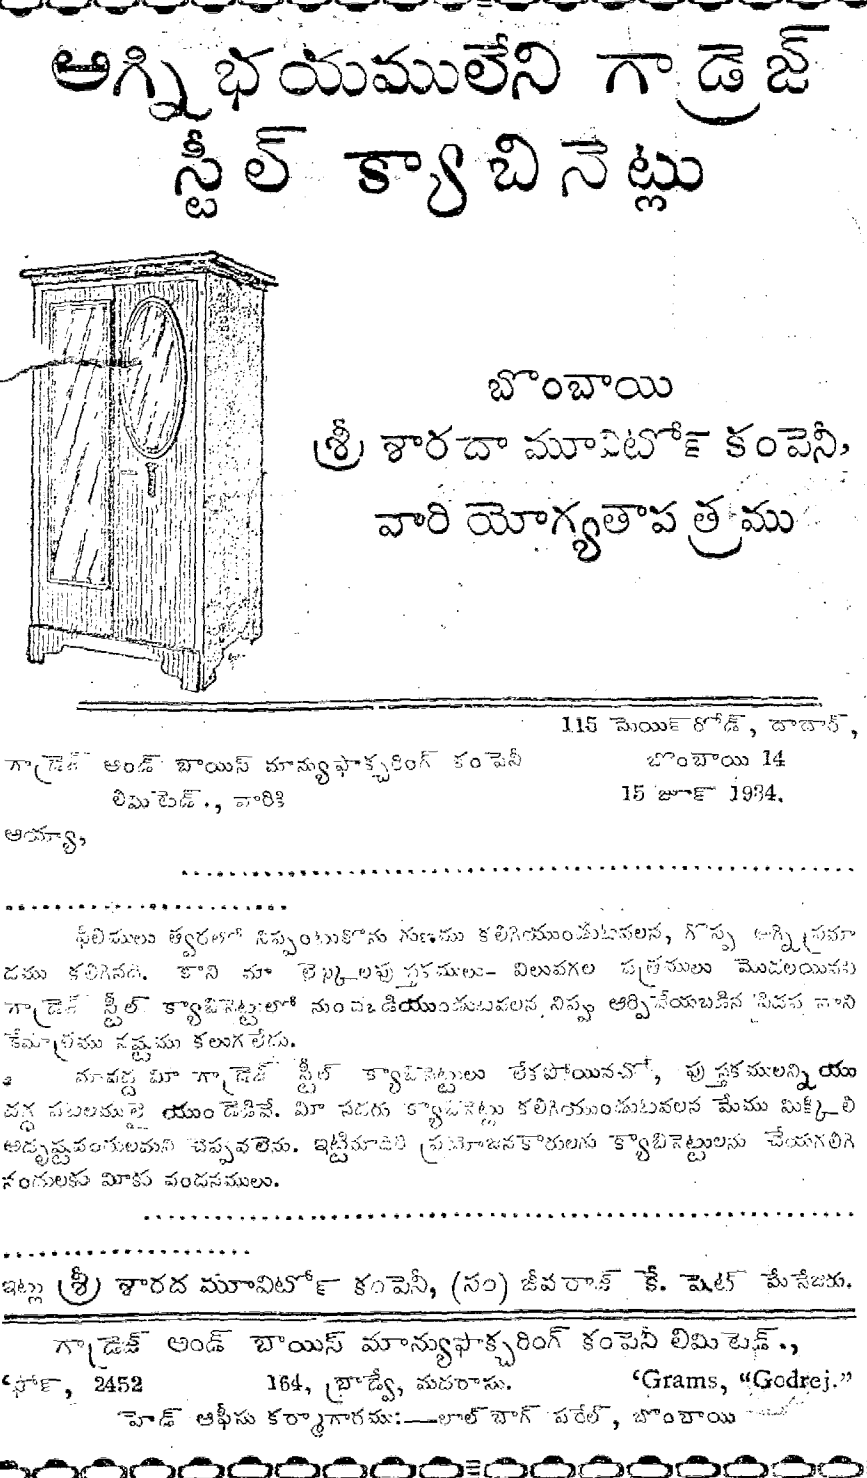 అగ్నిభయములేని గాడ్రెజ్
స్టీల్ క్యాబినెట్లు
బొంబాయి
శ్రీ శారదా మూవిటోన్ కంపెనీ,
వారి యోగ్యతాపత్రము
115 మెయిన్ రోడ్, దాదార్,
గాడ్రెజ్ అండ్ బాయిస్ మాన్యుఫాక్చరింగ్ కంపెనీ
బొంబాయి 14
లిమిటెడ్., వారికి
15 జూన్ 1934.
అయ్యా,
ఫిలిములు త్వరలో నిప్పంటుకొను గుణము కలిగియుండుటవలన, గొప్ప అగ్నిప్రమా
దము కలిగినది. కాని మా పుస్తకములు- విలువగల పత్రములు మొదలయినవి
గాడ్రెజ్ స్టీల్ క్యాబినెట్టులో నుంచబడియుండుటవలన నిప్పు ఆర్పివేయబడిన పిదప వాని
కేమాత్రము నష్టము కలుగలేదు.
మావద్ద మీ గాడ్రెజ్ స్టీల్ క్యాబినెట్టులు లేకపోయినచో, పుస్తకములన్నియు
దగ్ధ పటలములై యుండెడివే. మీ సదరు క్యాబినెట్లు కలిగియుండుటవలన మేము మిక్కిలి
అదృష్టవంతులమని చెప్పవలెను. ఇట్టిమాదిరి ప్రయోజనకారులను క్యాబినెట్టులను చేయగలిగి
నందులకు మీకు వందనములు.
ఇట్లు శ్రీ శారద మూవిటోన్ కంపెనీ, (సం) జీవరాజ్ కే. షెట్ మేనేజరు.
గాడ్రెజ్ అండ్ బాయిస్ మాన్యుఫాక్చరింగ్ కంపెనీ లిమిటెడ్.,
‘ఫోన్, 2452 164, బ్రాడ్వే, మదరాసు. ‘Grams, “Godrej.”
హెడ్ ఆఫీసు కర్మాగారము:—లాల్‌బాగ్ పరేల్, బొంబాయి